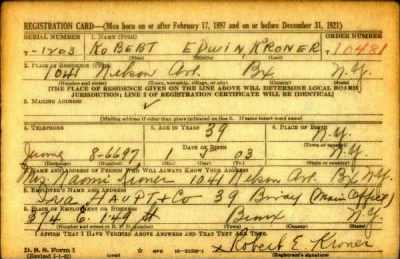 REGISTRATION CARD—(Men born on or after February 17, 1897 and on or before December 31, 1921)
SERIAL NUMBER 1. NAME (Print) ORDER NUMBER
1203 ROBERT EDWIN KRONER 10481
2. PLACE OF RESIDENCE (Print)
1041 Nelson Av. Bx N.Y.
(Number and street) (Town, township, village, or city) (County) (State)
[THE PLACE OF RESIDENCE GIVEN ON THE LINE ABOVE WILL DETERMINE LOCAL BOARD
JURISDICTION; LINE 2 OF REGISTRATION CERTIFICATE WILL BE IDENTICAL]
3. MAILING ADDRESS
[Mailing address if other than place indicated on line 2. If same insert word same]
4. TELEPHONE 5. AGE IN YEARS 6. PLACE OF BIRTH
39 N.Y.
DATE OF BIRTH
Jerome 8-6697 1 7 03 N.Y.
7. NAME AND ADDRESS OF PERSON WHO WILL ALWAYS KNOW YOUR ADDRESS
Mrs. Naomi Kroner 1041 Nelson Av. Bx N.Y.
8. EMPLOYER'S NAME AND ADDRESS
Ira HAUPT & Co 39 Bway (Main Office)
9. PLACE OF EMPLOYMENT OR BUSINESS
374 E. 149 St Bronx N.Y.
(Number and street or R. F. D. number) (Town) (County) (State)
I AFFIRM THAT I HAVE VERIFIED ABOVE ANSWERS AND THAT THEY ARE TRUE.
D. S. S. Form 1
(Revised 1-1-42) x Robert E. Kroner
(Registrant's signature)